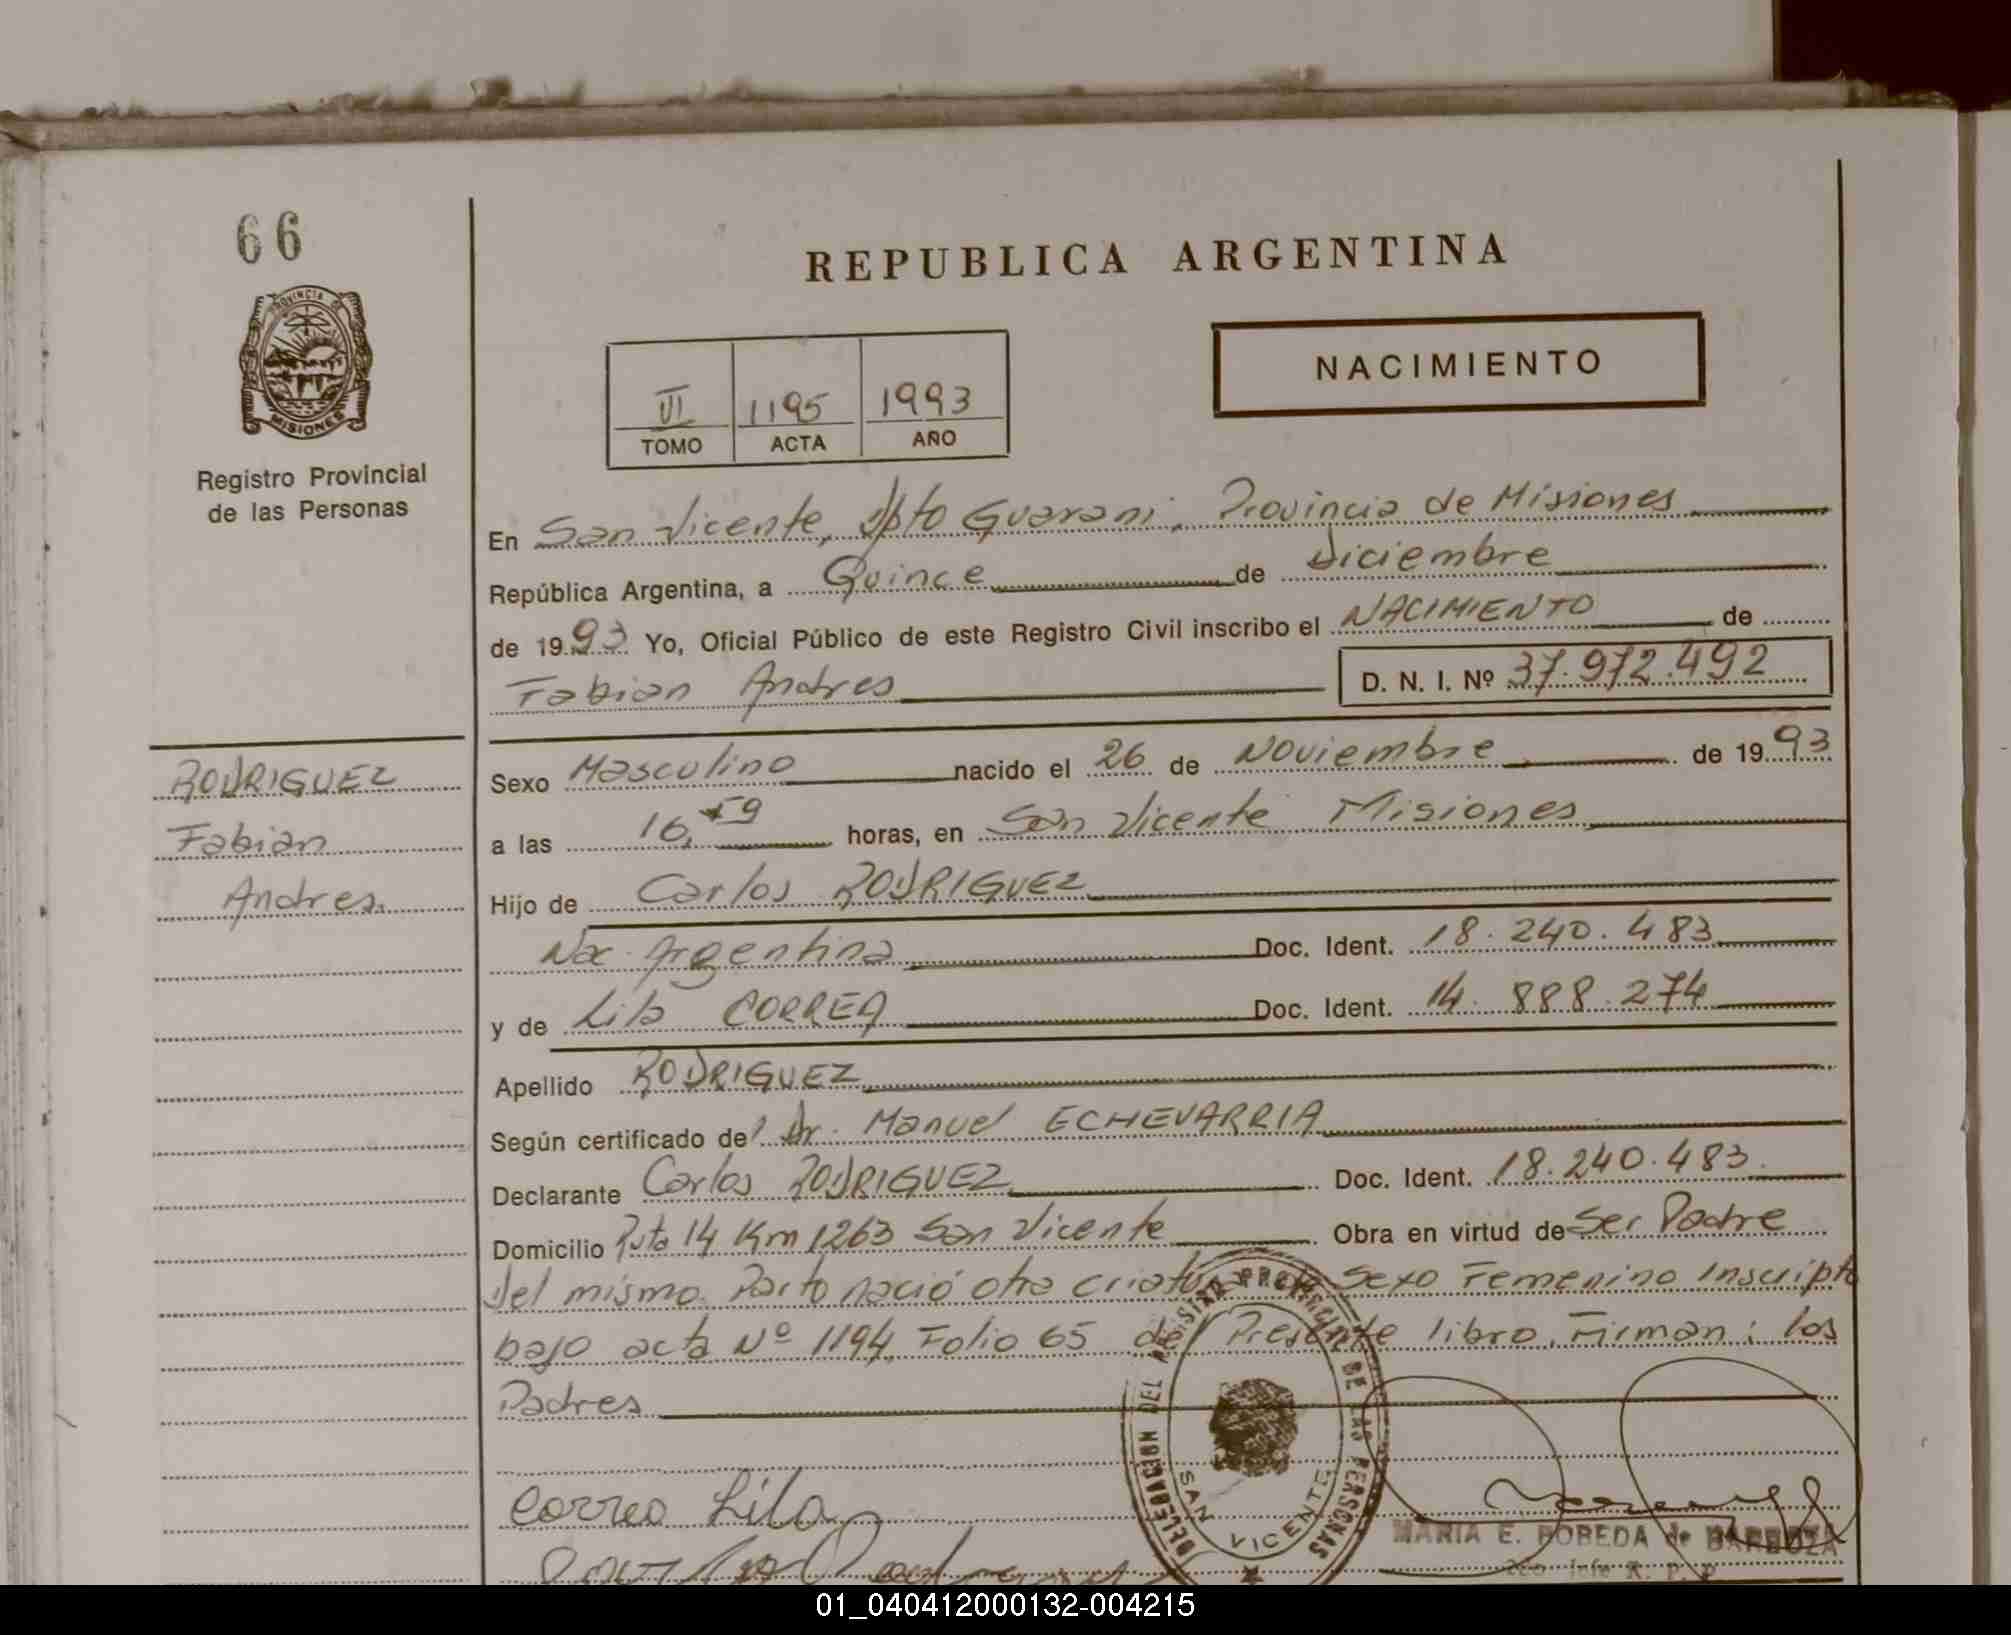 66
REPUBLICA ARGENTINA
PROVINCIA DE
MISIONES
NACIMIENTO
VI 1195 1993
TOMO ACTA AÑO
Registro Provincial
de las Personas
En San Vicente, Dpto Guarani, Provincia de Misiones
República Argentina, a Quince de Diciembre
de 1993 Yo, Oficial Público de este Registro Civil inscribo el NACIMIENTO de
Fabian Andres D. N. I. Nº 37.972.492
RODRIGUEZ
Fabian
Andres.
Sexo Masculino nacido el 26 de Noviembre de 1993
a las 16, horas, en San Vicente Misiones
Hijo de Carlos RODRIGUEZ
Nac. Argentina Doc. Ident. 18.240.483
y de Lila CORREA Doc. Ident. 14.888.274
Apellido RODRIGUEZ
Según certificado del Dr. Manuel ECHEVARRIA
Declarante Carlos RODRIGUEZ Doc. Ident. 18.240.483
Domicilio Ruta 14 Km 1263 San Vicente Obra en virtud de Ser Padre
Del mismo Parto nació otra criatura Sexo Femenino Inscripta
bajo acta Nº 1194, Folio 65 del Presente libro. Firman: los
Padres
DELEGACIÓN DEL REGISTRO PROVINCIAL DE LAS PERSONAS
SAN VICENTE
Correa Lila
MARIA E. POBEDA de BARBOZA
R. P. P.
01_040412000132-004215